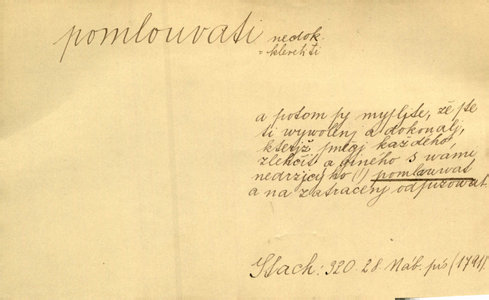 pomlouvati nedok.
= klerehti
a potom sy mysljte, žě jste
ti wywolenj a dokonalj,
kteřjž smějj každého,
zlehčit a giného s wámi
nedržjcýho (!) pomlauwat
a na zatracenj odsuzowat.
Stach: 320. 28. Náb. pís (1791).